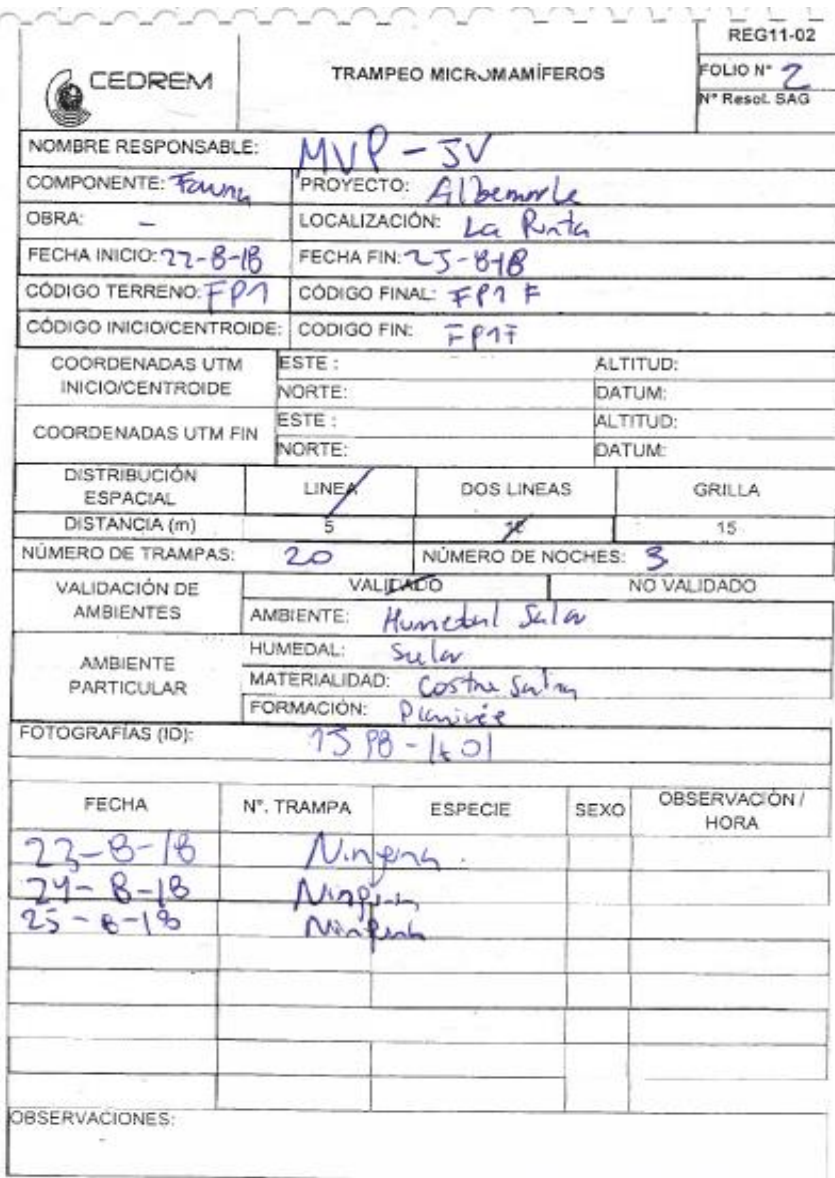 REG11-02
CEDREM
TRAMPEO MICROMAMÍFEROS
FOLIO N° 2
N° Resol. SAG
NOMBRE RESPONSABLE: MVP - JV
COMPONENTE: Fauna PROYECTO: Albemarle
OBRA: - LOCALIZACIÓN: La Punta
FECHA INICIO: 22-8-18 FECHA FIN: 25-8-18
CÓDIGO TERRENO: FP1 CÓDIGO FINAL: FP1 F
CÓDIGO INICIO/CENTROIDE: CODIGO FIN: FP1F
COORDENADAS UTM INICIO/CENTROIDE ESTE : ALTITUD:
NORTE: DATUM:
COORDENADAS UTM FIN ESTE : ALTITUD:
NORTE: DATUM:
DISTRIBUCIÓN ESPACIAL LINEA DOS LINEAS GRILLA
DISTANCIA (m) 5 10 15
NÚMERO DE TRAMPAS: 20 NÚMERO DE NOCHES: 3
VALIDACIÓN DE AMBIENTES VALIDADO NO VALIDADO
AMBIENTE: Humedal Salar
AMBIENTE PARTICULAR HUMEDAL: Salar
MATERIALIDAD: Costra Salina
FORMACIÓN:
FOTOGRAFÍAS (ID): 1398 - 1401
FECHA N°. TRAMPA ESPECIE SEXO OBSERVACIÓN / HORA
23-8-18 Ninguna.
24-8-18 Ninguna
25-8-18 Ninguna
OBSERVACIONES: